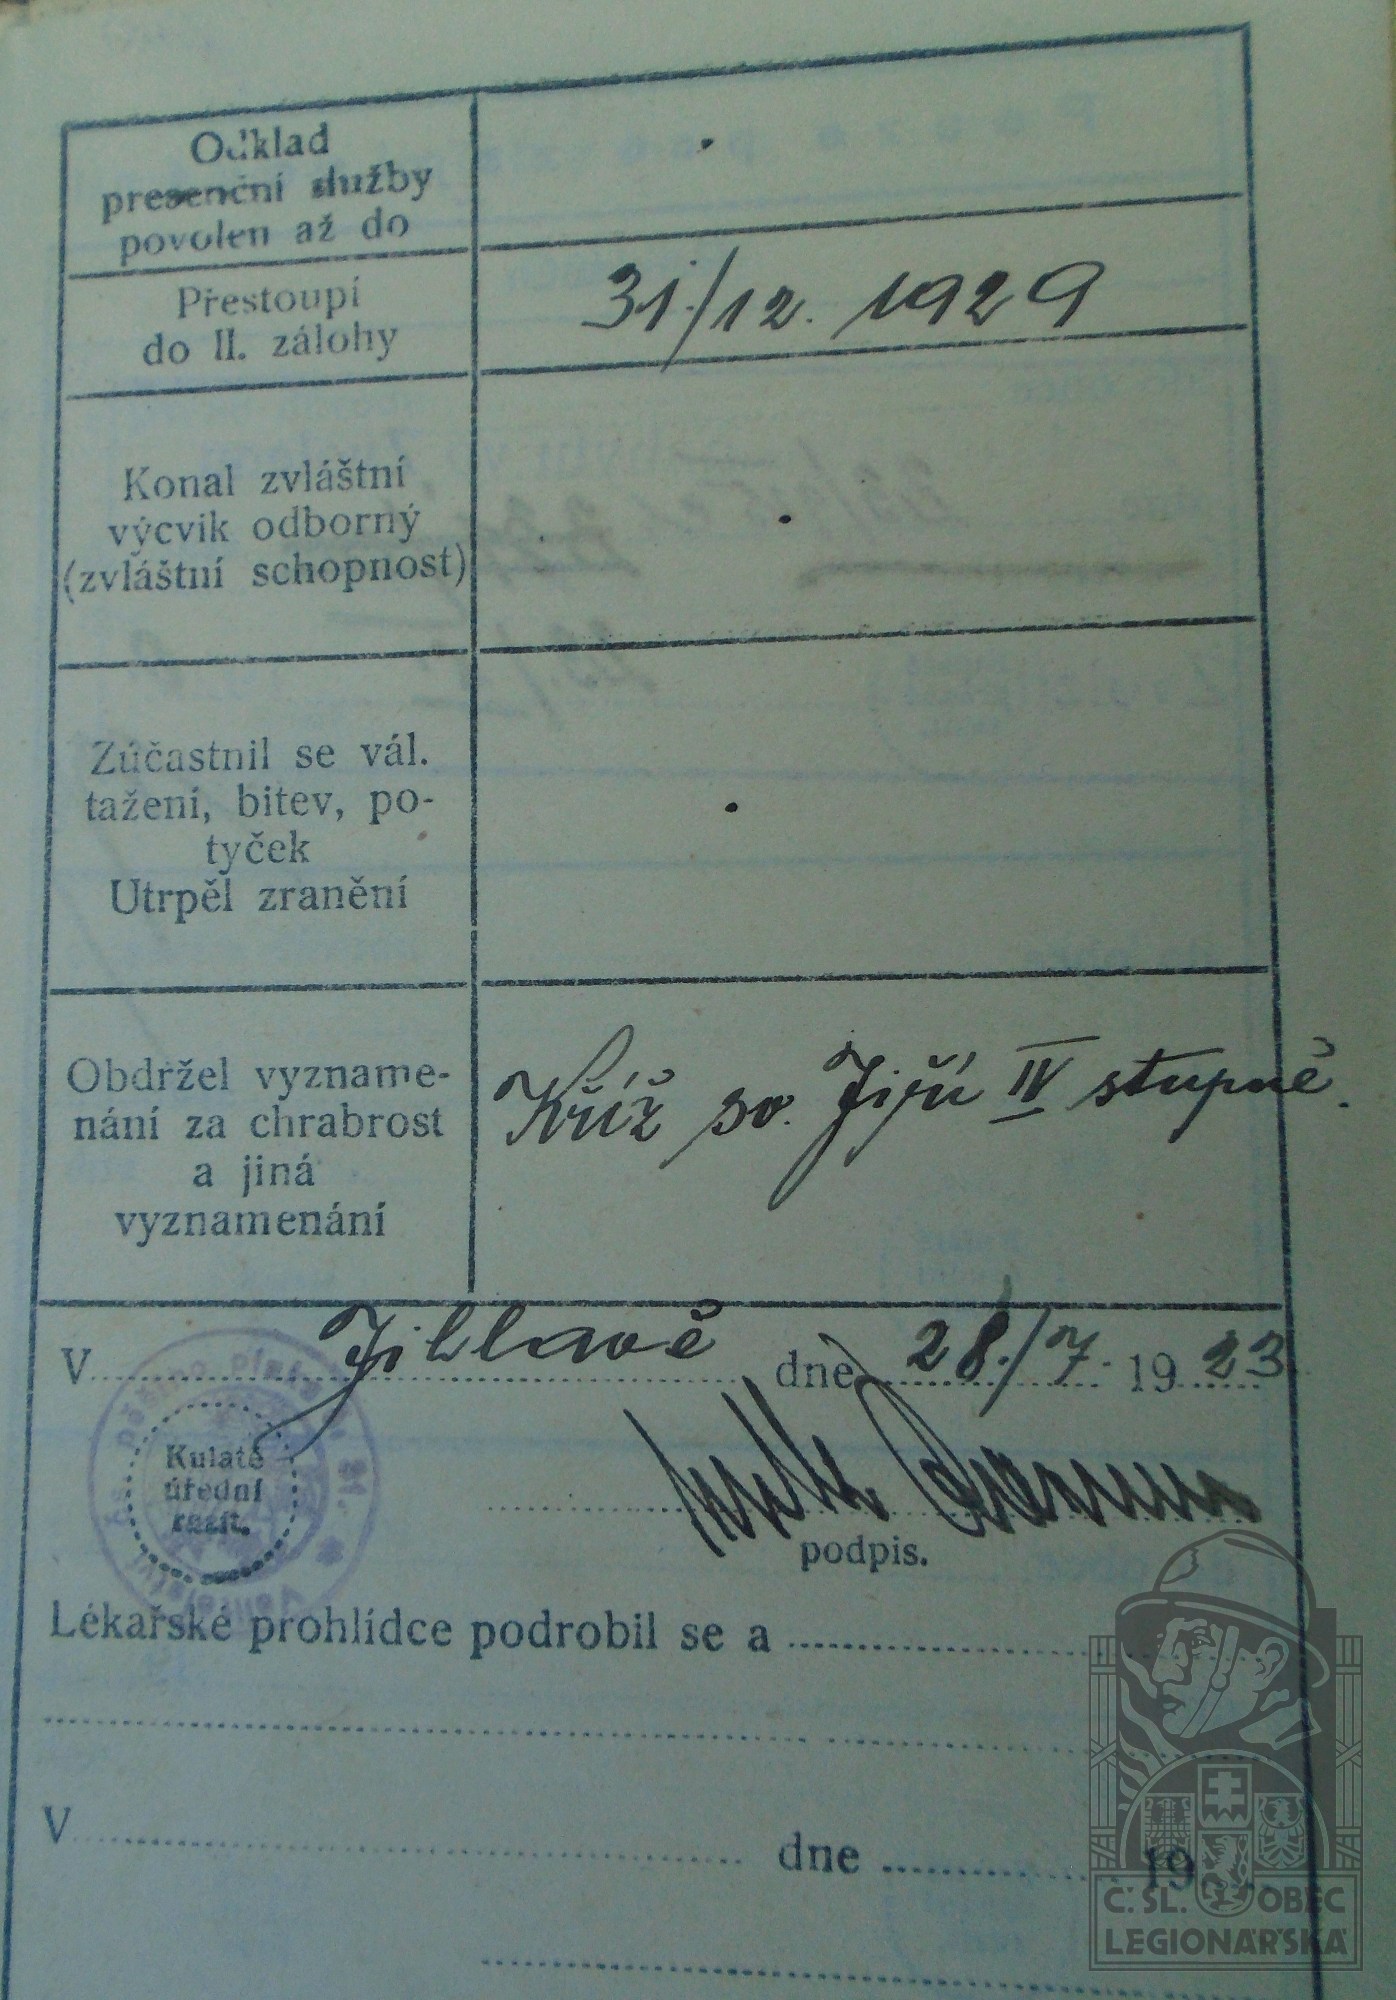 Odklad
presenční služby
povolen až do
Přestoupí
do II. zálohy
31./12. 1929
Konal zvláštní
výcvik odborný
(zvláštní schopnost)
Zúčastnil se vál.
tažení, bitev, po-
tyček
Utrpěl zranění
Obdržel vyzname-
nání za chrabrost
a jiná
vyznamenání
Kříž sv. Jiří IV stupně.
V Jihlavě dne 28./7. 1923
Kulaté
úřední
razít.
podpis.
Lékařské prohlídce podrobil se a
V dne 19
Č. SL. OBEC
LEGIONÁŘSKÁ